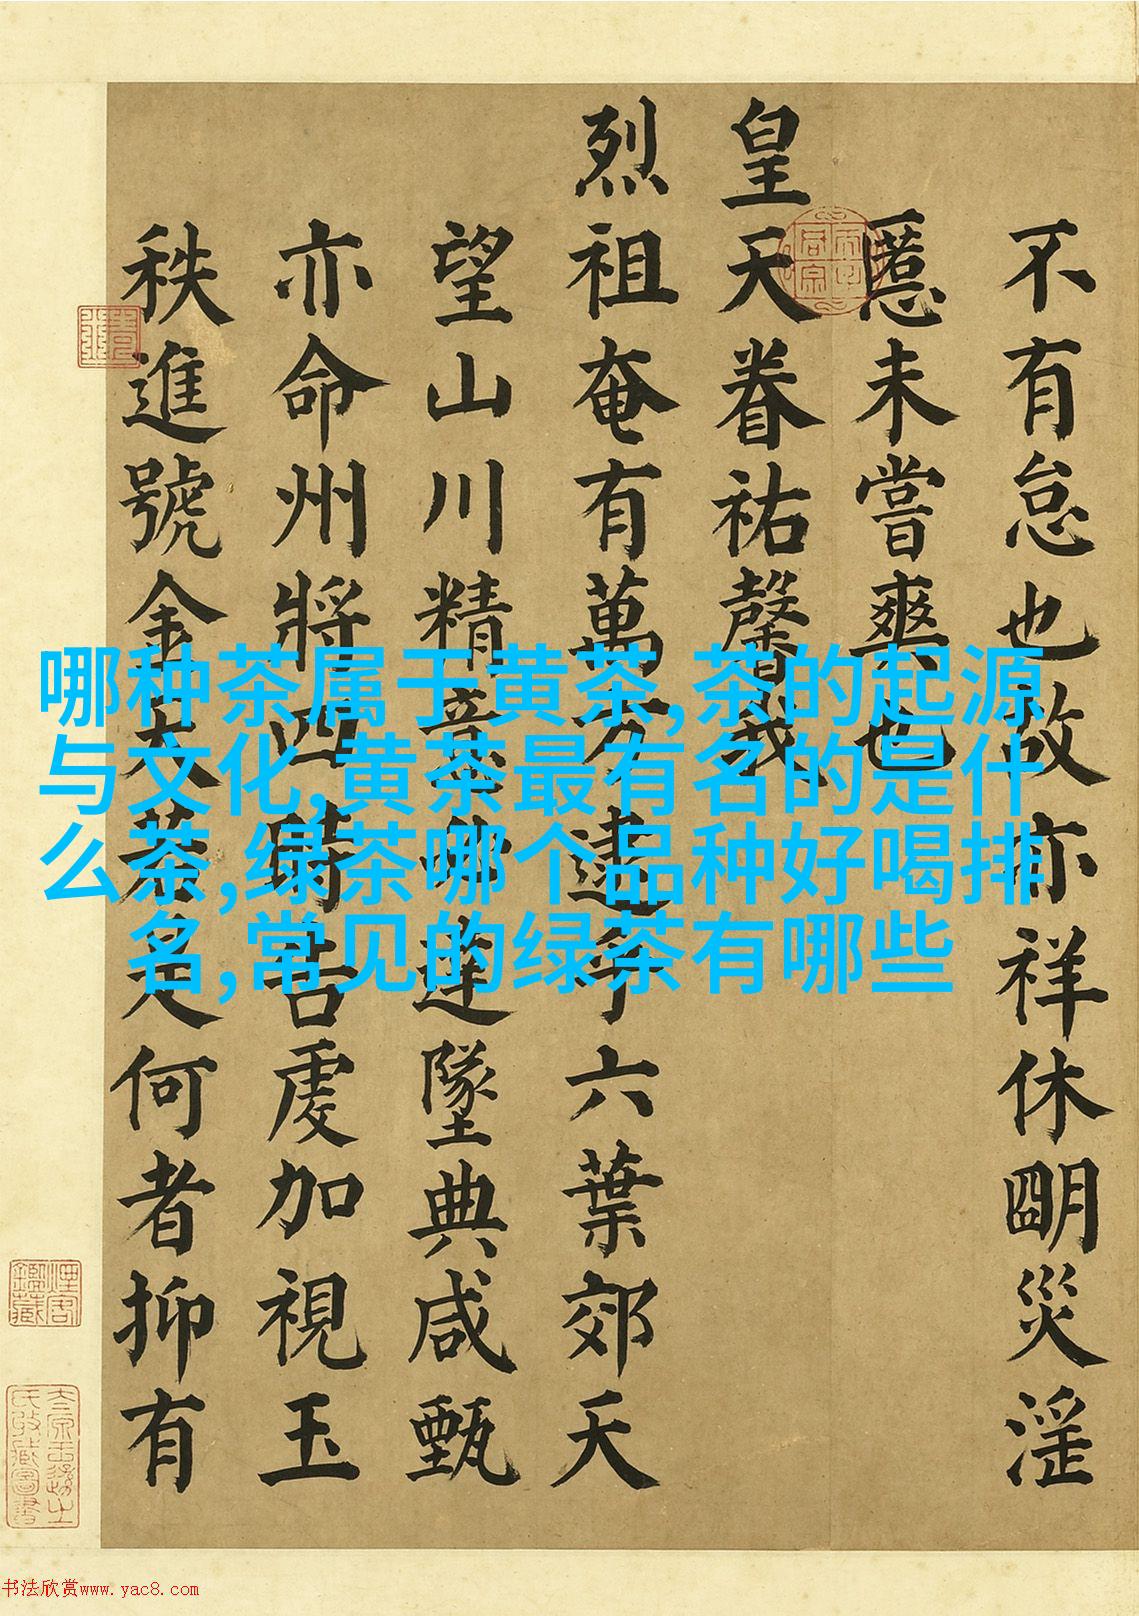 不有怠也故亦祥休明災淫
慝未嘗爽也
皇天眷祐馨我
烈祖奄有萬方逮乎六葉郊天
望山川精意必達墜典咸甄
亦命州將四時告虔加視王
秩進號金天茶尤何者抑有
哪种茶属于黄茶,茶的起源
与文化,黄茶最有名的是什
么茶,绿茶哪个品种好喝排
名,常见的绿茶有哪些
书法欣赏www.yac8.com